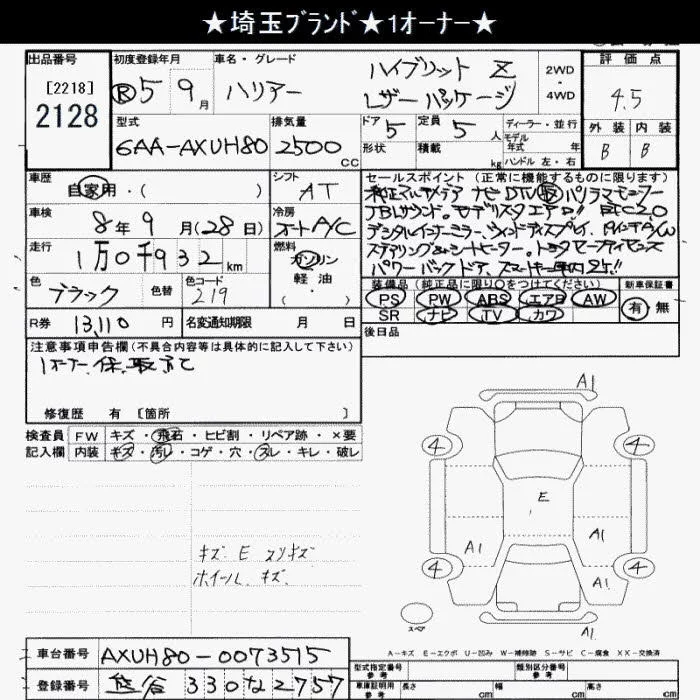 ★埼玉ﾌﾞﾗﾝﾄﾞ★1オーナー★
出品番号
[2218]
2128
初度登録年月
Ⓡ5 9月
車名・グレード
ハリアー
ハイブリット Z
レザーパッケージ
2WD・4WD
評価点
4.5
外装 内装
B B
型式
6AA-AXUH80
排気量
2500 CC
ドア 5
定員 5人
形状
積載 kg
ディーラー・並行
モデル
年式 年
ハンドル 左・右
車歴
自家用・( )
シフト
AT
車検
8年9月(28日)
冷房
オートA/C
走行
1万0千932km
燃料
ガソリン
軽油
( ・ )
色
ブラック
色替
色コード
219
R券 13,110円
名変通知期限 月 日
セールスポイント (正常に機能するものに限ります)
純正マルチメディア ナビ DTV パノラマモニター
JBLサウンド。モデリスタエアロ!! ETC2.0
デジタルインナーミラー。
ステアリング&シートヒーター。トヨタセーフティセンス
パワーバックドア、スマートキー
装備品 (純正品に限り○をつけてください)
PS PW ABS エアB AW
SR ナビ TV カワ
新車保証書
有 無
後日品
注意事項申告欄 (不具合内容等は具体的に記入して下さい)
1オーナー、保、取、
修復歴 有 [箇所 ]
検査員
記入欄
FW キズ・飛石・ヒビ割・リペア跡・×要
内装 キズ・汚レ・コゲ・穴・スレ・キレ・破レ
キズ E スリキズ
ホイール キズ
A1
④ ④
E
A1 A1
④ A1 ④
A1
スペア
A-キズ E-エクボ U-凹み W-補修跡 S-サビ C-腐食 XX-交換済
車台番号 AXUH80-0073515
登録番号 熊谷 330 な 2757
型式指定番号
参考
類別区分番号
参考
車庫証明用
参考
長さ cm 幅 cm 高さ cm